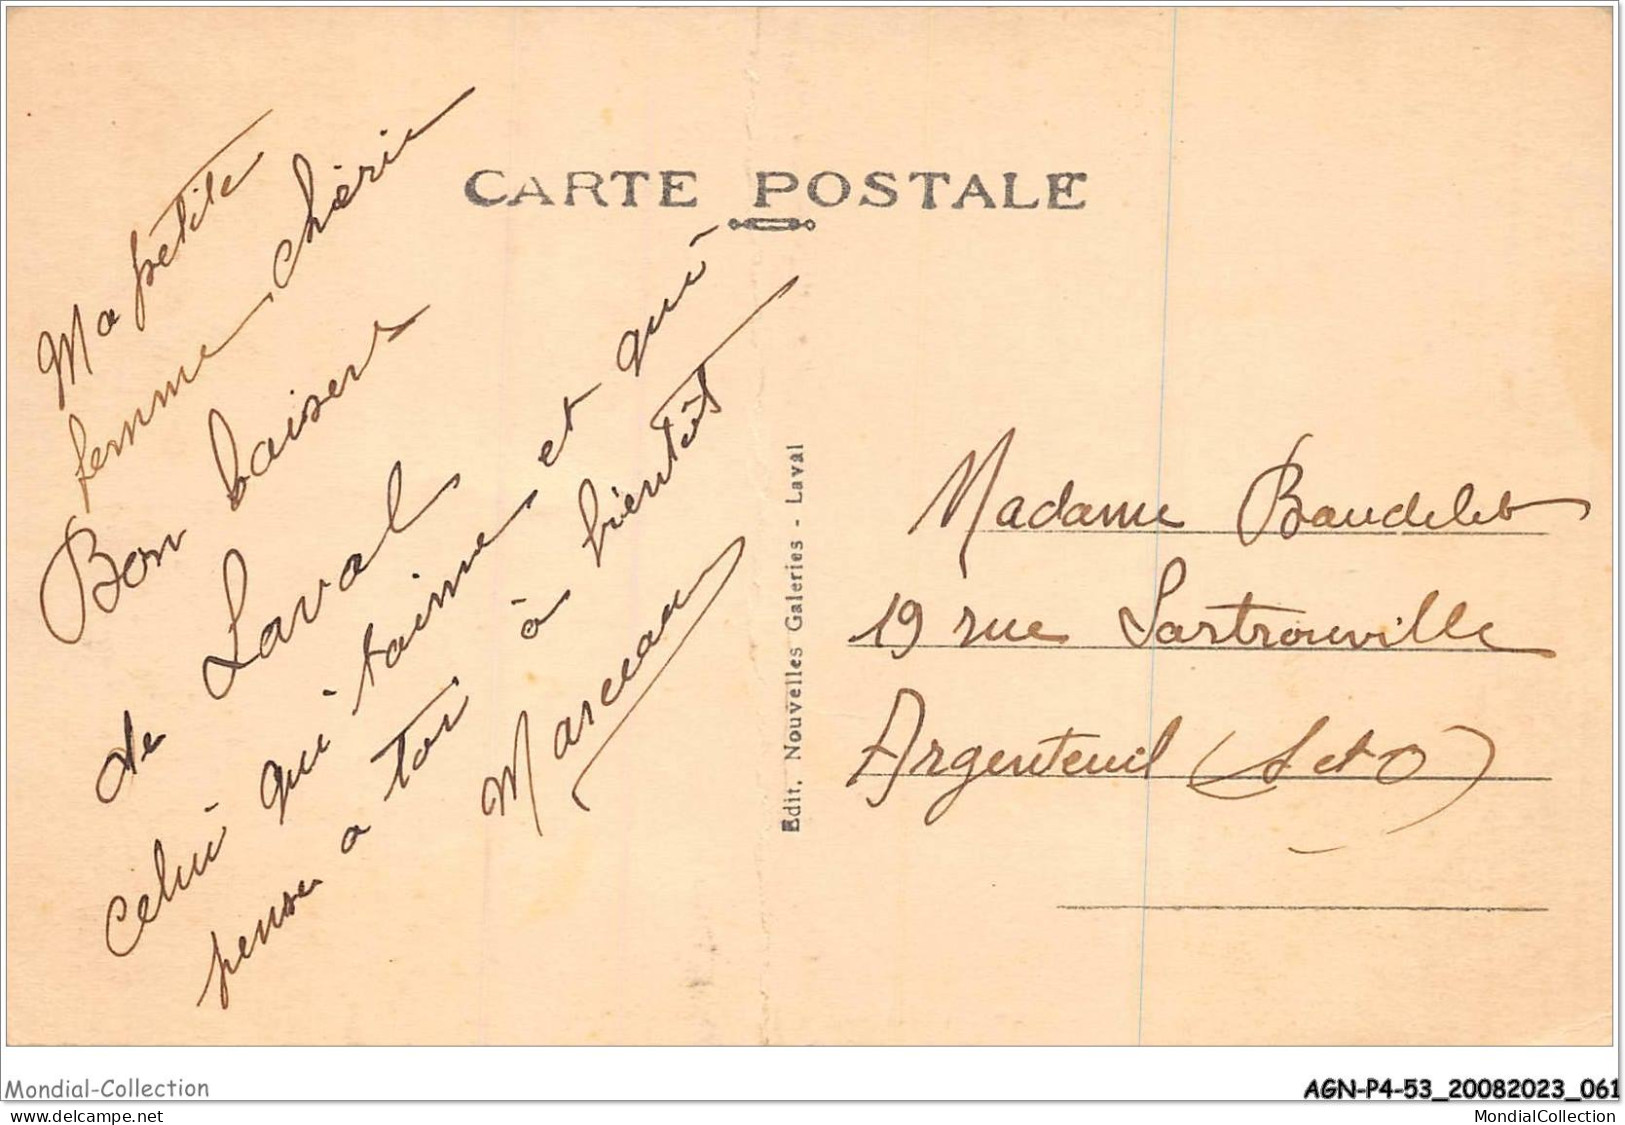 CARTE POSTALE
Ma petite
femme chérie
Bon baisers
de Laval
Celui qui t'aime et qui
pense a toi à bientôt
Marceau
Edit. Nouvelles Galeries - Laval
Madame Baudelet
19 rue Sartrouville
Argenteuil (S et O)
Mondial-Collection
AGN-P4-53_20082023_061
www.delcampe.net
MondialCollection